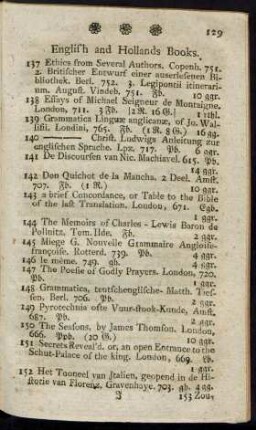 129
English and Hollands Books.
137 Ethics from Several Authors. Copenh. 751.
2. Britischer Entwurf einer auserlesenen Bi-
bliothek. Berl. 752. 3. Legipontii itinerari-
um. August. Vindeb. 751. Fb. 10 ggr.
138 Essays of Michael Seigneur de Montaigne.
London, 711. 3 Fb. [2 R. 16 G.] 1 rthl.
139 Grammatica Linguæ anglicanæ, of Jo. Wal-
lisii. Londini, 765. Fb. (1 R. 8 G.) 16 gg.
140 ——— Christ. Ludwigs Anleitung zur
englischen Sprache. Lpz. 717. Pb. 6 ggr.
141 De Discoursen van Nic. Machiavel. 615. Pb.
14 ggr.
142 Don Quichot de la Mancha. 2 Deel. Amst.
707. Fb. (1 R.) 10 ggr.
143 a brief Concordance, or Table to the Bible
of the last Translation. London, 671. Egb.
1 ggr.
144 The Memoirs of Charles-Lewis Baron de
Pollnitz. Tom. IIde. Fb. 2 ggr.
145 Miege G. Nouvelle Grammaire Angloise-
françoise. Rotterd. 739. Pb. 4 ggr.
146 le même. 749. gb. 4 ggr.
147 The Poesie of Godly Prayers. London, 720.
Pb. 1 ggr.
148 Grammatica, teutschenglische- Matth. Ties-
sen. Berl. 706. Pb. 2 ggr.
149 Pyrotechnis ofte Vuur-stook-Kunde, Amst.
687. Pb. 2 ggr.
150 The Seasons. by James Thomson. London,
666. Ppb. (20 G.) 10 ggr.
151 Secrets Reveal'd. or, an open Entrance to the
Schut-Palace of the king. London, 669. Lb.
1 ggr.
152 Het Tooneel van Jtalien, geopend in de Hi-
storie van Florenz, Gravenhaye. 703. gb. 4 gg.
J 153 Zou-